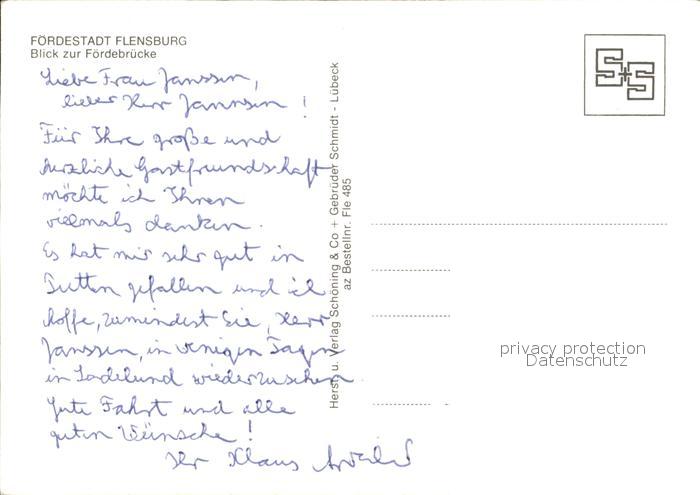 FÖRDESTADT FLENSBURG
Blick zur Fördebrücke
Liebe Frau Janssen,
lieber Herr Janssen !
Für Ihre große und
herzliche Gastfreundschaft
möchte ich Ihnen
vielmals danken.
Es hat mir sehr gut in
gefallen und ich
hoffe, zumindest Sie, Herr
Janssen, in wenigen Tagen
in Ladelund wiederzusehen.
Gute Fahrt und alle
guten Wünsche !
Ihr Klaus
Herst. u. Verlag Schöning & Co + Gebrüder Schmidt - Lübeck
az Bestellnr. Fle 485
S+S
privacy protection
Datenschutz